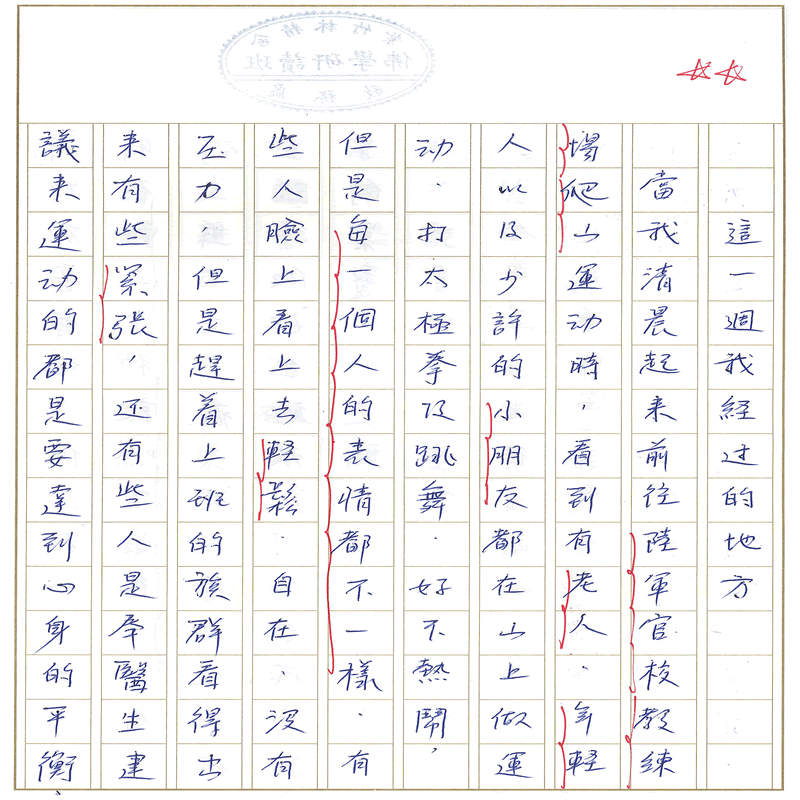 這一週我経过的地方
當我清晨起来前往陸軍官校教練
場爬山運动時，看到有老人．年輕
人以及少許的小朋友都在山上做運
动．打太極拳及跳舞．好不熱鬧，
但是每一個人的表情都不一樣．有
些人臉上看上去輕鬆．自在．沒有
压力．但是趕着上班的族群看得出
来有些緊張，还有些人是奉醫生建
議来運动的都是要達到心身的平衡、
佛學研讀班